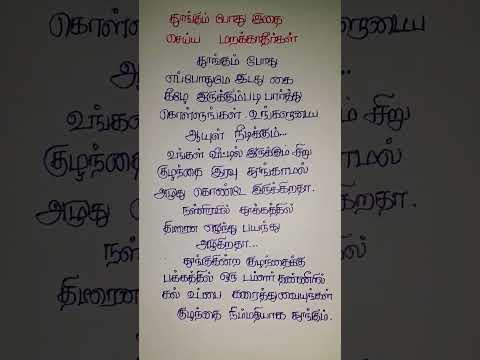 தூங்கும் போது இதை
செய்ய மறக்காதீர்கள்
தூங்கும் போது
எப்போதுமே இடது கை
கீழே இருக்கும்படி பார்த்து
கொள்ளுங்கள் உங்களுடைய
ஆயுள் நீடிக்கும்...
உங்கள் வீட்டில் இருக்கும் சிறு
குழந்தை இரவு தூங்காமல்
அழுது கொண்டே இருக்கிறதா.
நள்ளிரவில் தூக்கத்தில்
திடீரென எழுந்து பயந்து
அழுகிறதா...
தூங்குகின்ற குழந்தைக்கு
பக்கத்தில் ஒரு டம்ளர் தண்ணீரில்
கல் உப்பை கரைத்துவையுங்கள்
குழந்தை நிம்மதியாக தூங்கும்.